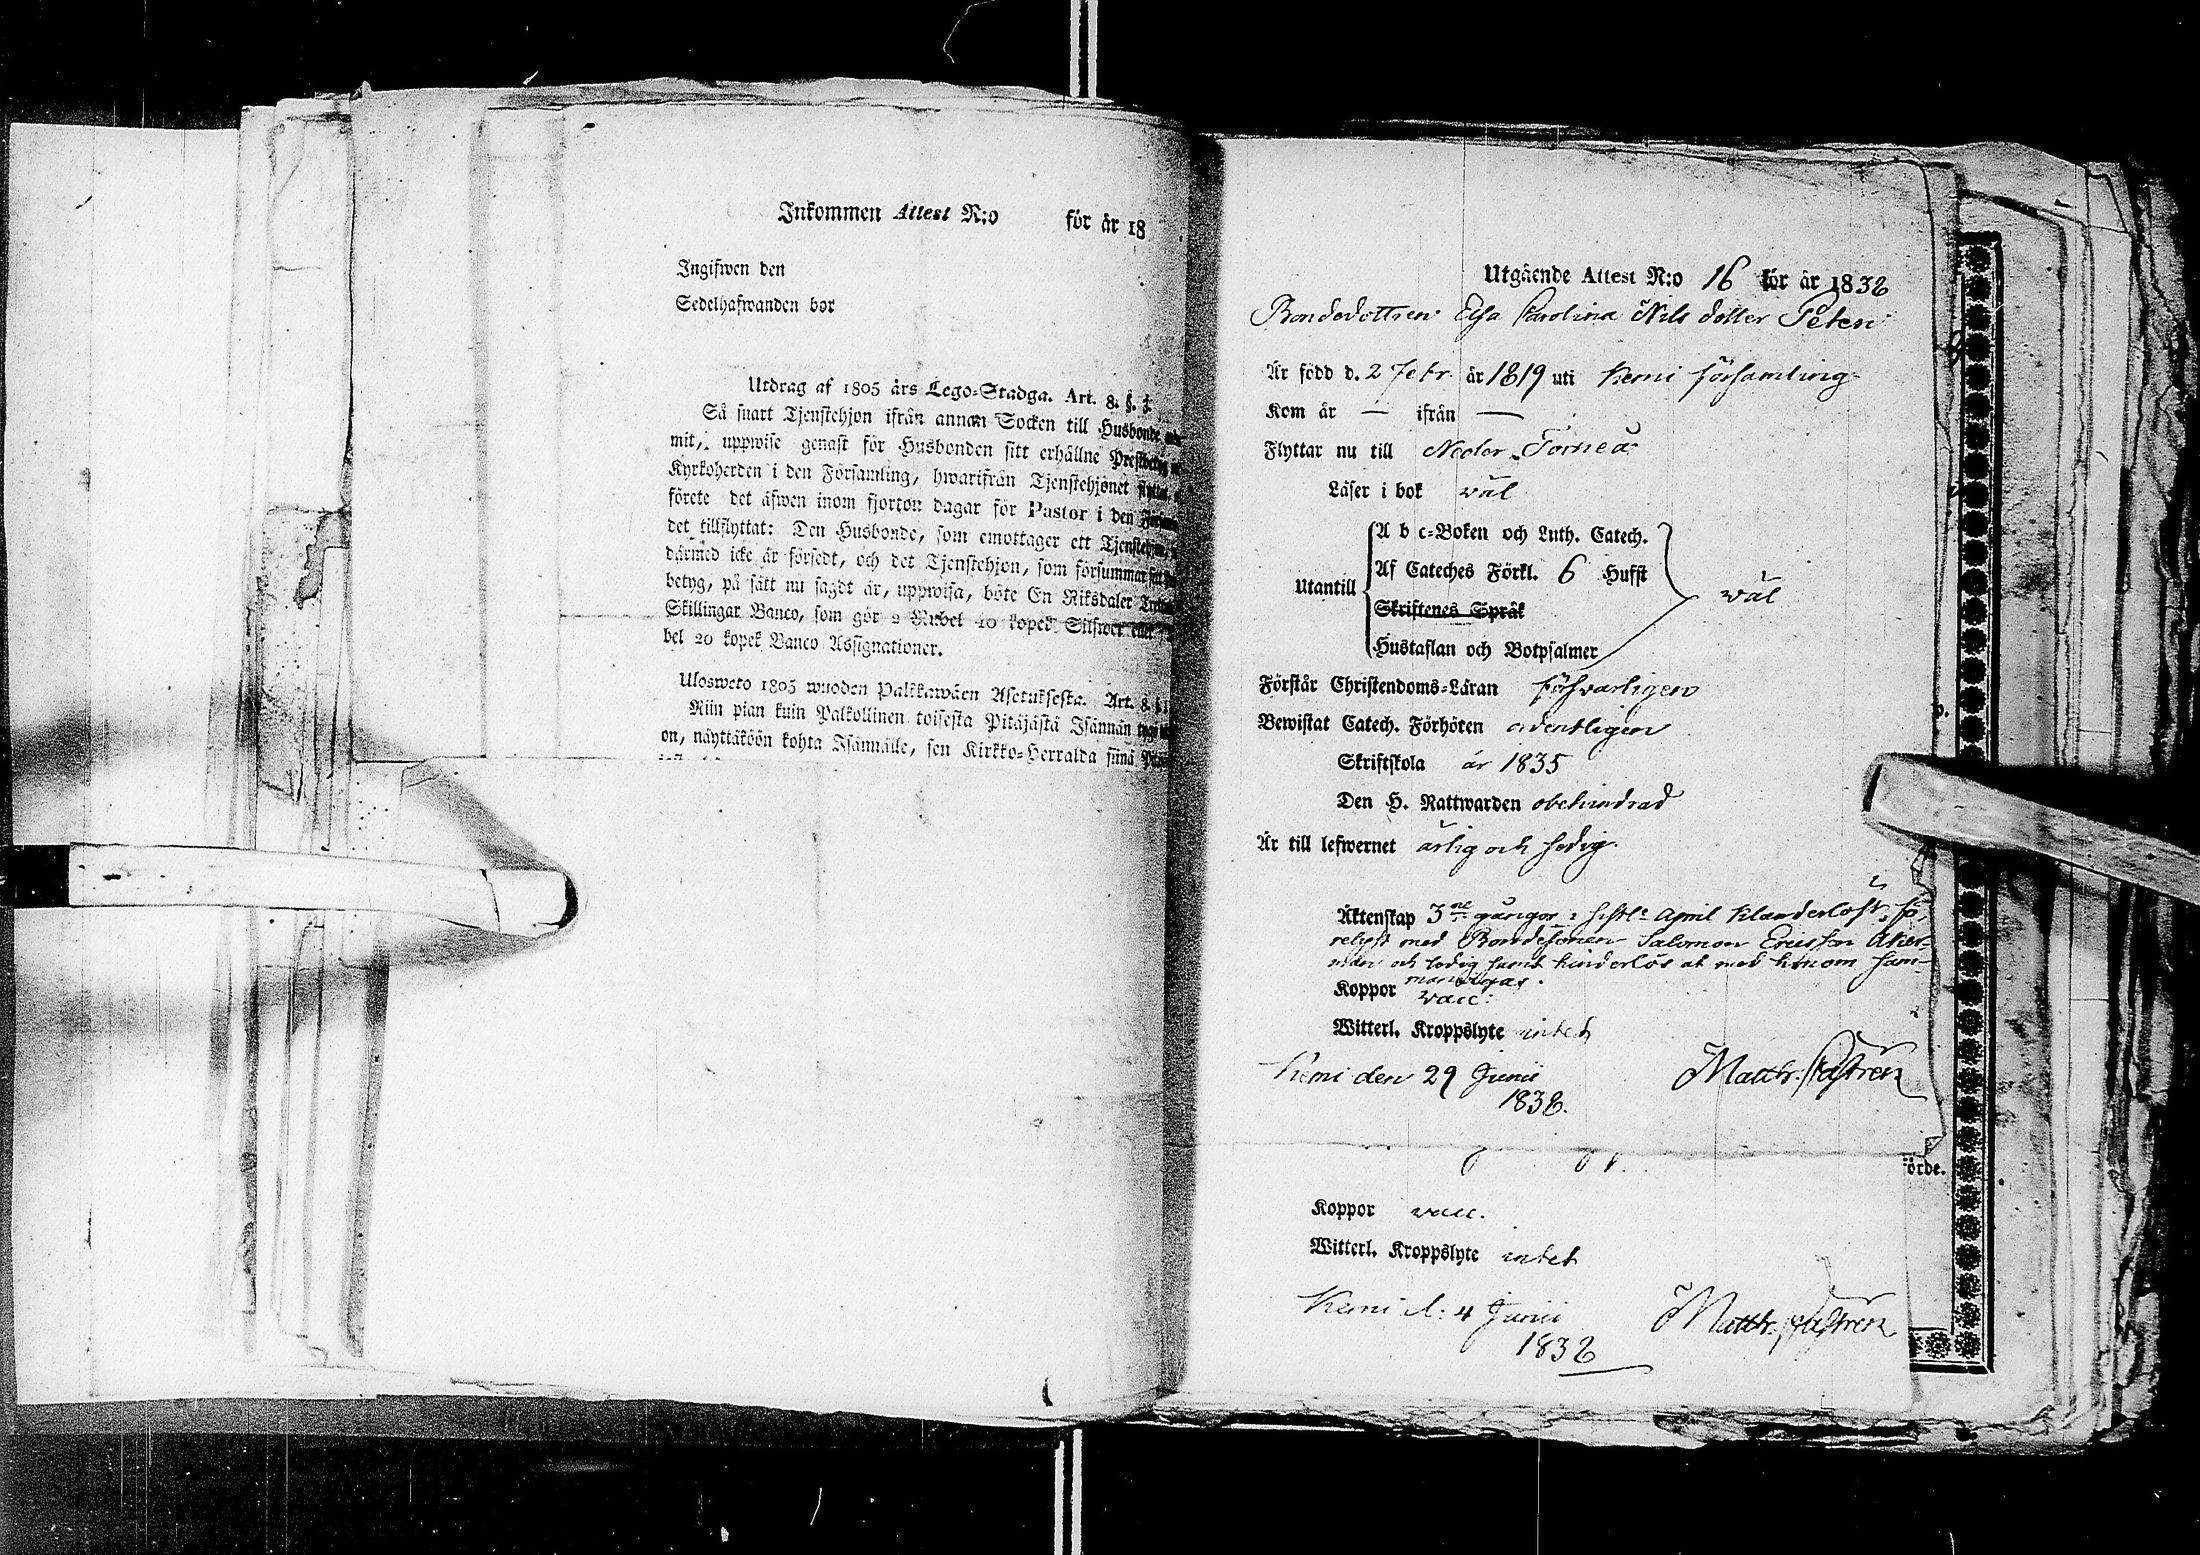 Inkommen Attest N:o för år 18
Ingifwen den
Sedelhafwanden bor
Utdrag af 1805 års Lego=Stadga. Art. 8. §. 1.
Så snart Tjenstehjon ifrån annan Socken till Husbonde
mit, uppwise genast för Husbonden sitt erhållne
Kyrkoherden i den Församling, hwarifrån Tjenstehjonet
förete det äfwen inom fjorton dagar för Pastor i den
det tillflyttat: Den Husbonde, som emottager ett
därmed icke är försedt, och det Tjenstehjon, som försummar
betyg, på sätt nu sagdt är, uppwisa, böte En Riksdaler
Skillingar Banco, som gör 2 Rubel 40 kopek Silfwer eller
bel 20 kopek Banco Assignationer.
Ulosweto 1805 wuoden Palkkawäen Asetuksesta. Art. 8. §
Niin pian kuin Palkollinen toisesta Pitäjästä Isännän
on, näyttäköön kohta Isännälle, sen Kirkko=Herralda siinä
Utgående Attest N:o 16 för år 1838
Bondedottren Elsa Carolina Nils dotter Peteri
Är född d. 2 Febr. år 1819 uti Kemi församling
Kom år — ifrån —
Flyttar nu till Neder Torneå
Läser i bok väl
A b c=Boken och Luth. Catech.
Utantill Af Cateches Förkl. 6 Hufst väl
Skriftenes Språk
Hustaflan och Botpsalmer
Förstår Christendoms=Läran försvarligen
Bewistat Catech. Förhören ordentligen
Skriftskola år 1835
Den H. Nattwarden obehindrad
Är till lefwernet ärlig och sedig.
Äktenskap 3ne gångor i sistl: April klanderlöst
relyst med Bondesonen Salomon Ericsson Åker-
man och ledig samt hinderlös at med honom sam-
manvigas.
Koppor vacc:
Witterl. Kroppslyte intet
Kemi den 29 Junii Matth. Castrén
1838.
förde.
Koppor vacc.
Witterl. Kroppslyte intet
Kemi d: 4 Junii Matth. Castrén
1838